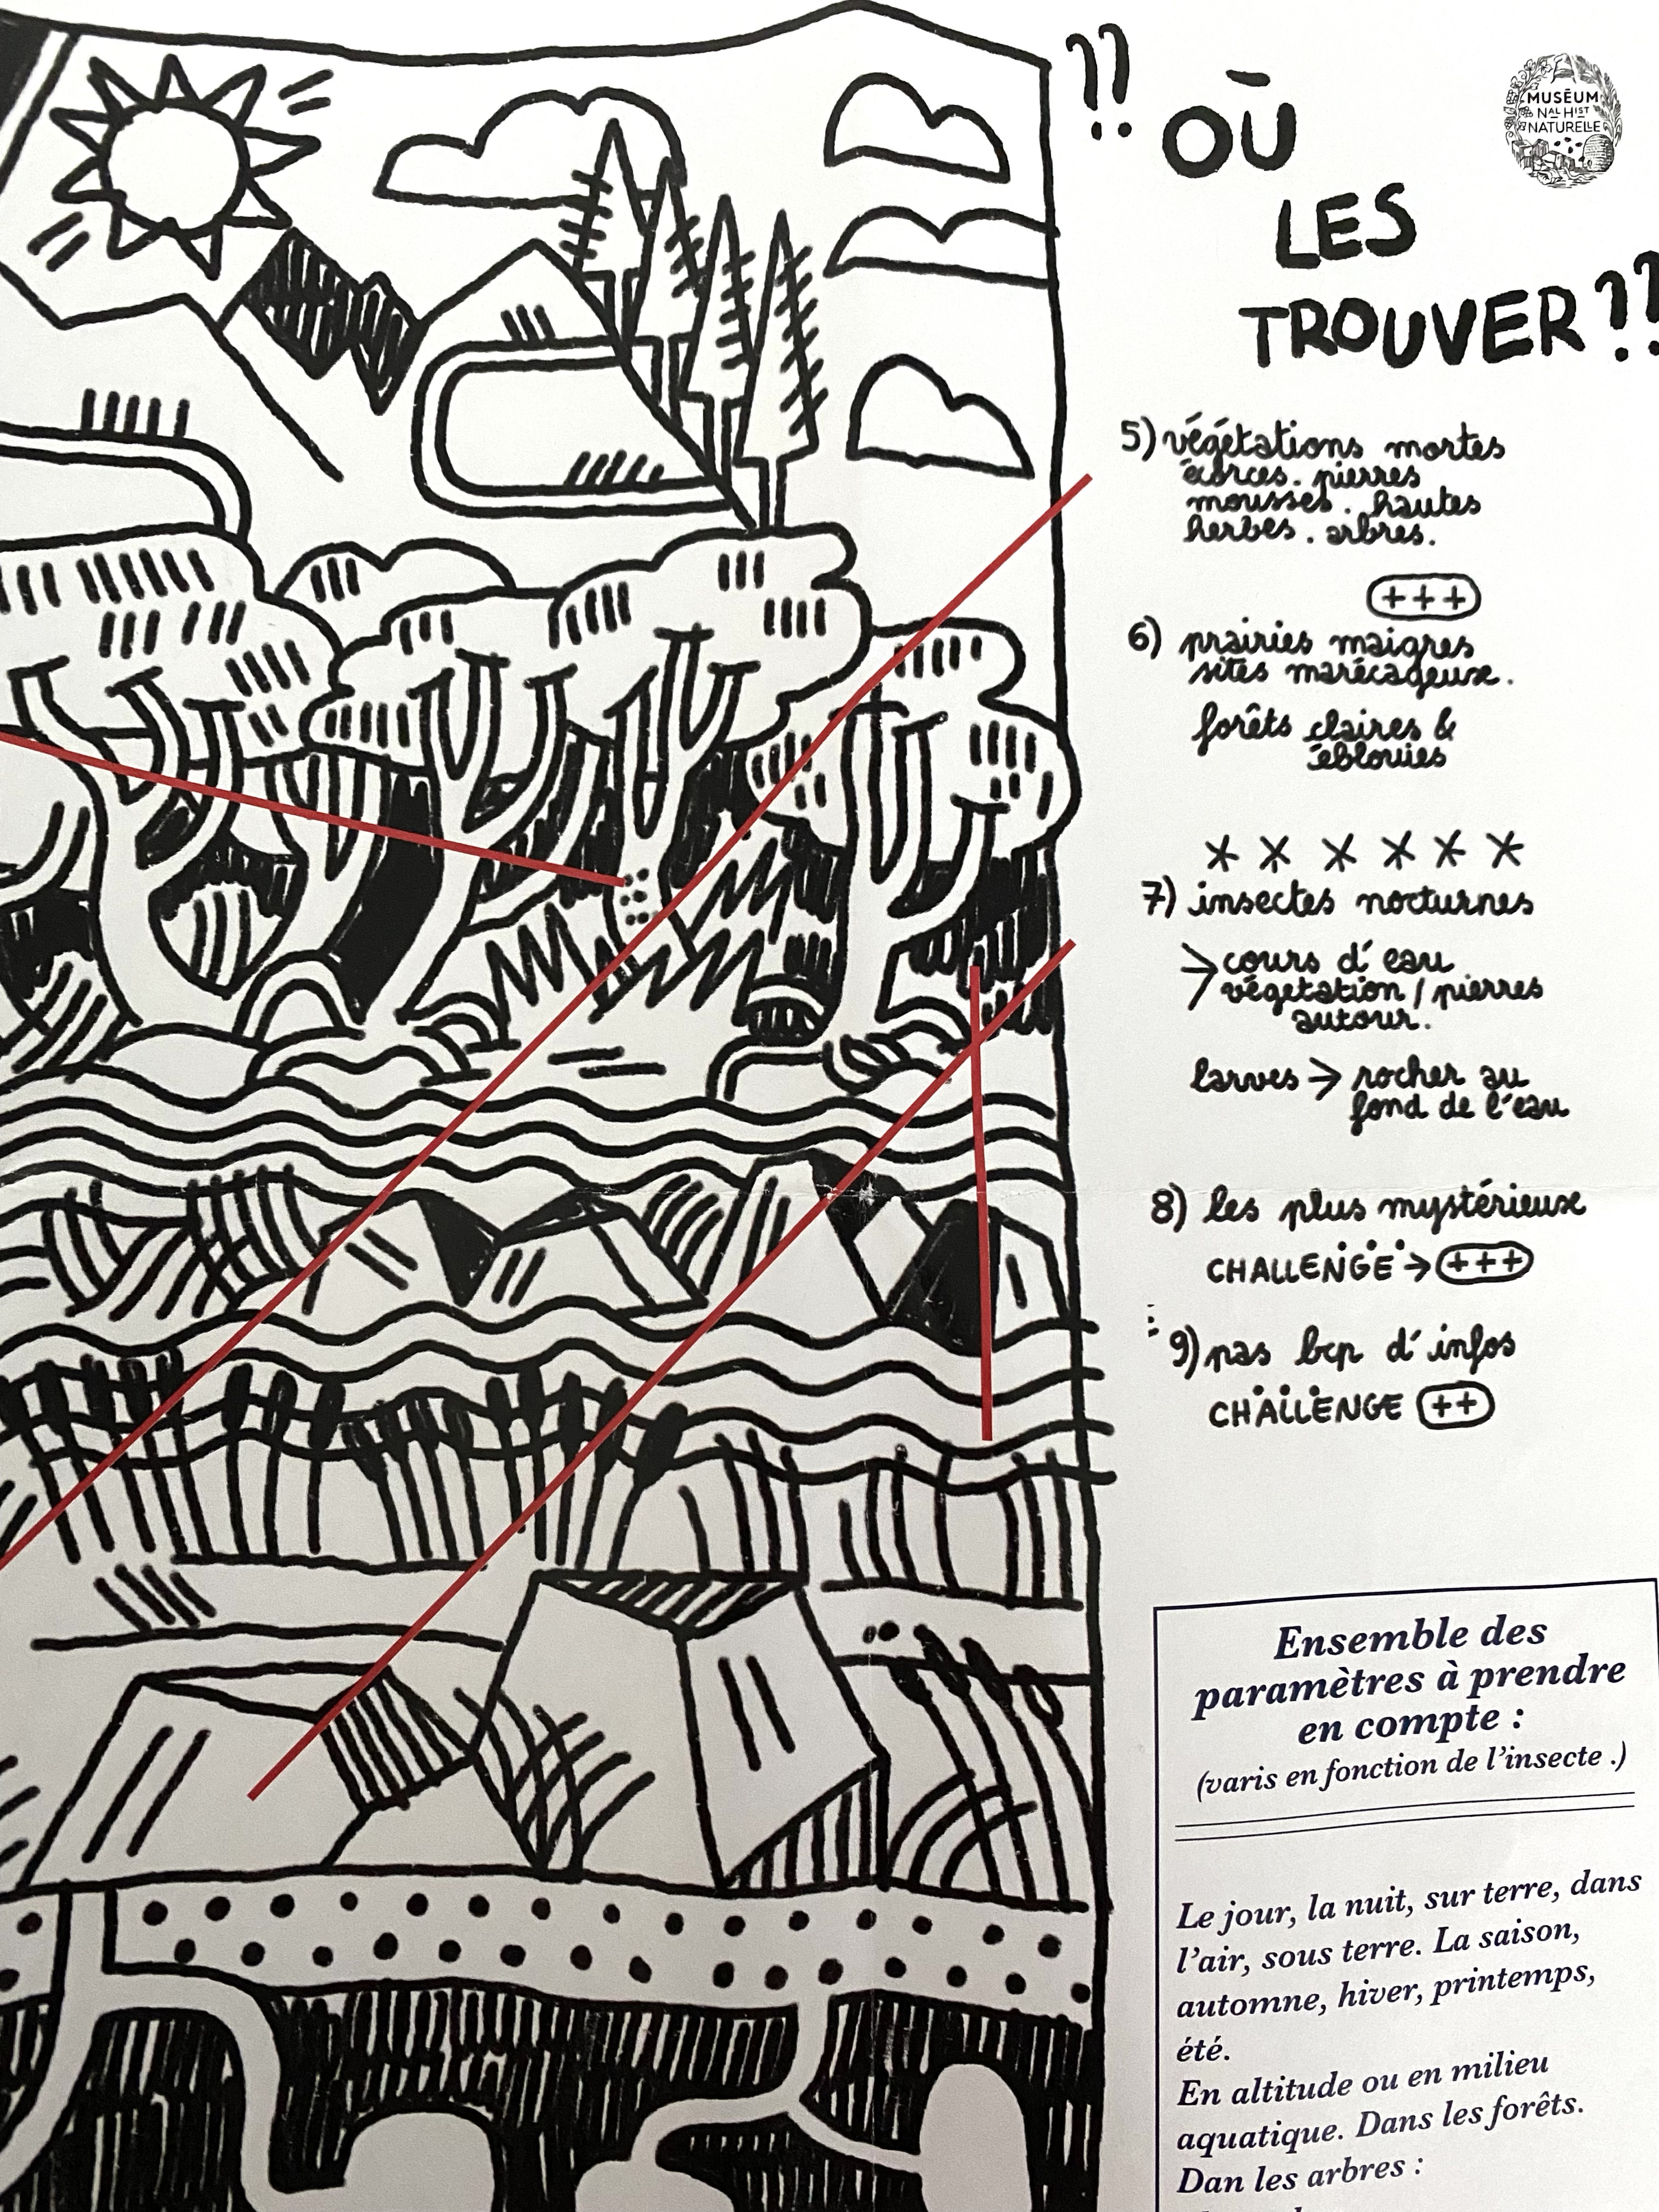 ?? OÙ
LES
TROUVER ??
MUSÉUM
NAL HIST
NATURELLE
5) végétations mortes
écorces. pierres
mousses. hautes
herbes. arbres.
+++
6) prairies maigres
sites marécageux.
forêts claires &
éblouies
* * * * * *
7) insectes nocturnes
→ cours d'eau
végétation / pierres
autour.
larves → rocher au
fond de l'eau
8) les plus mystérieux
CHALLENGE → +++
9) pas bcp d'infos
CHALLENGE ++
Ensemble des
paramètres à prendre
en compte :
(varis en fonction de l'insecte .)
Le jour, la nuit, sur terre, dans
l'air, sous terre. La saison,
automne, hiver, printemps,
été.
En altitude ou en milieu
aquatique. Dans les forêts.
Dan les arbres :